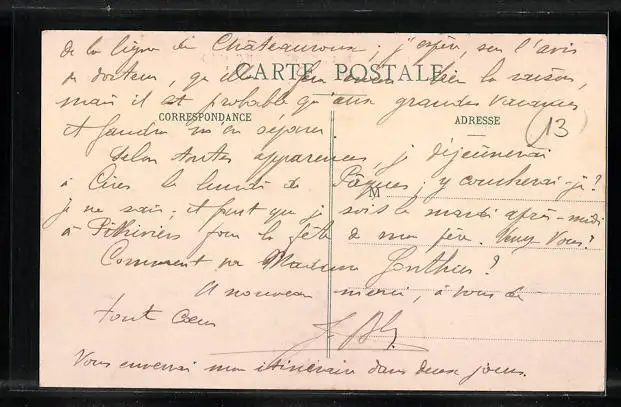 de la ligne de Châteauroux ; j'espère, sur l'avis
du docteur, qu'elle bien la saison,
CARTE POSTALE
mais il est probable qu'aux grandes vacances
CORRESPONDANCE
ADRESSE
13
il faudra m'en séparer
Selon toutes apparences, je déjeunerai
à le lundi de Pâques ; y coucherai-je ?
M
je ne sais ; il faut que je sois le mardi après-midi
à Pithiviers pour la fête de mon père. Venez-vous ?
Comment va Madame Gonthier ?
A nouveau merci, à vous de
tout cœur
Vous enverrai mon itinéraire dans deux jours.